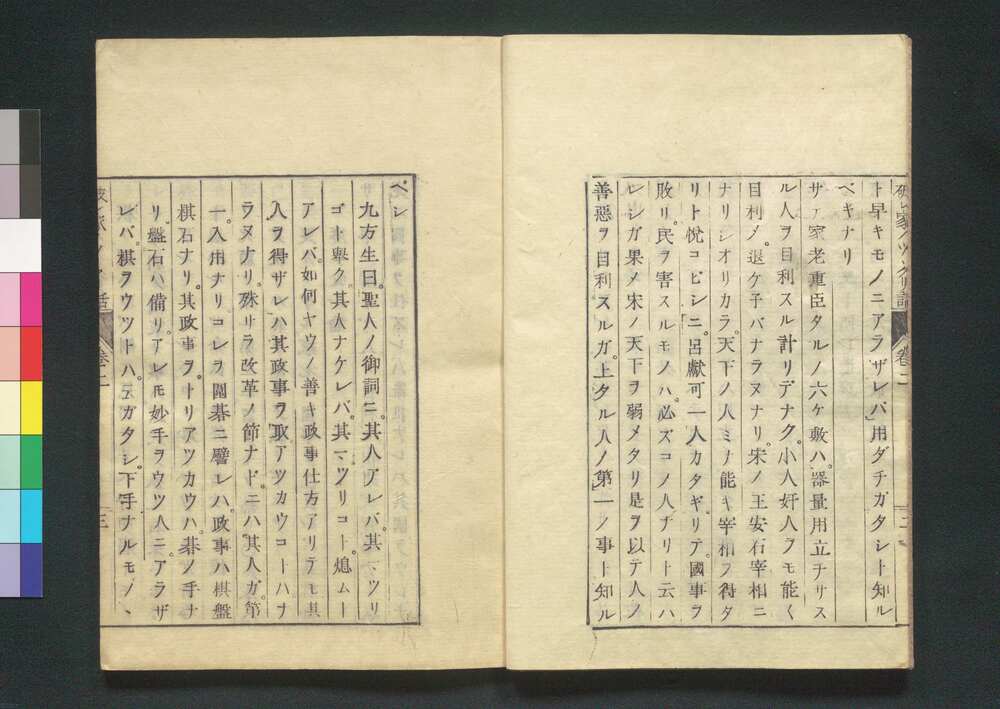 ト早キモノニアラザレバ用ダチガタシト知ル
ベキナリ
サテ家老重臣タルノ六ケ敷ハ。器量用立チサス
ル人ヲ目利スル計リデナク。小人奸人ヲモ能ク
目利メ。退ケ子バナラヌナリ。宋ノ王安石宰相ニ
ナリシオリカラ。天下ノ人ミナ能キ宰相ヲ得タ
リト悦コビシニ。呂獻可一人カタギリテ。國事ヲ
敗リ。民ヲ害スルモノハ。必ズコノ人ナリト云ハ
レシガ果メ宋ノ天下ヲ弱メタリ是ヲ以テ人ノ
善惡ヲ目利スルガ。上タル人ノ第一ノ事ト知ル
巻二
二
ベシ
九方生曰。聖人ノ御詞ニ。其人アレバ。其マツリ
ゴト擧ク。其人ナケレバ。其マツリコト熄ムト
アレバ。如何ヤウノ善キ政事仕方アリテモ其
人ヲ得ザレハ其政事ヲ取アツカウコトハナ
ラヌナリ。殊サラ改革ノ節ナドニハ其人ガ。第
一。入用ナリコレヲ圍碁ニ譬レハ。政事ハ棋盤
棋石ナリ。其政事ヲトリアツカウハ。碁ノ手ナ
リ。盤石ハ備リアレモ妙手ヲウツ人ニ。アラザ
レバ。棋ヲウツトハ。云ガタシ。下手ナルモノヽ
巻二
三